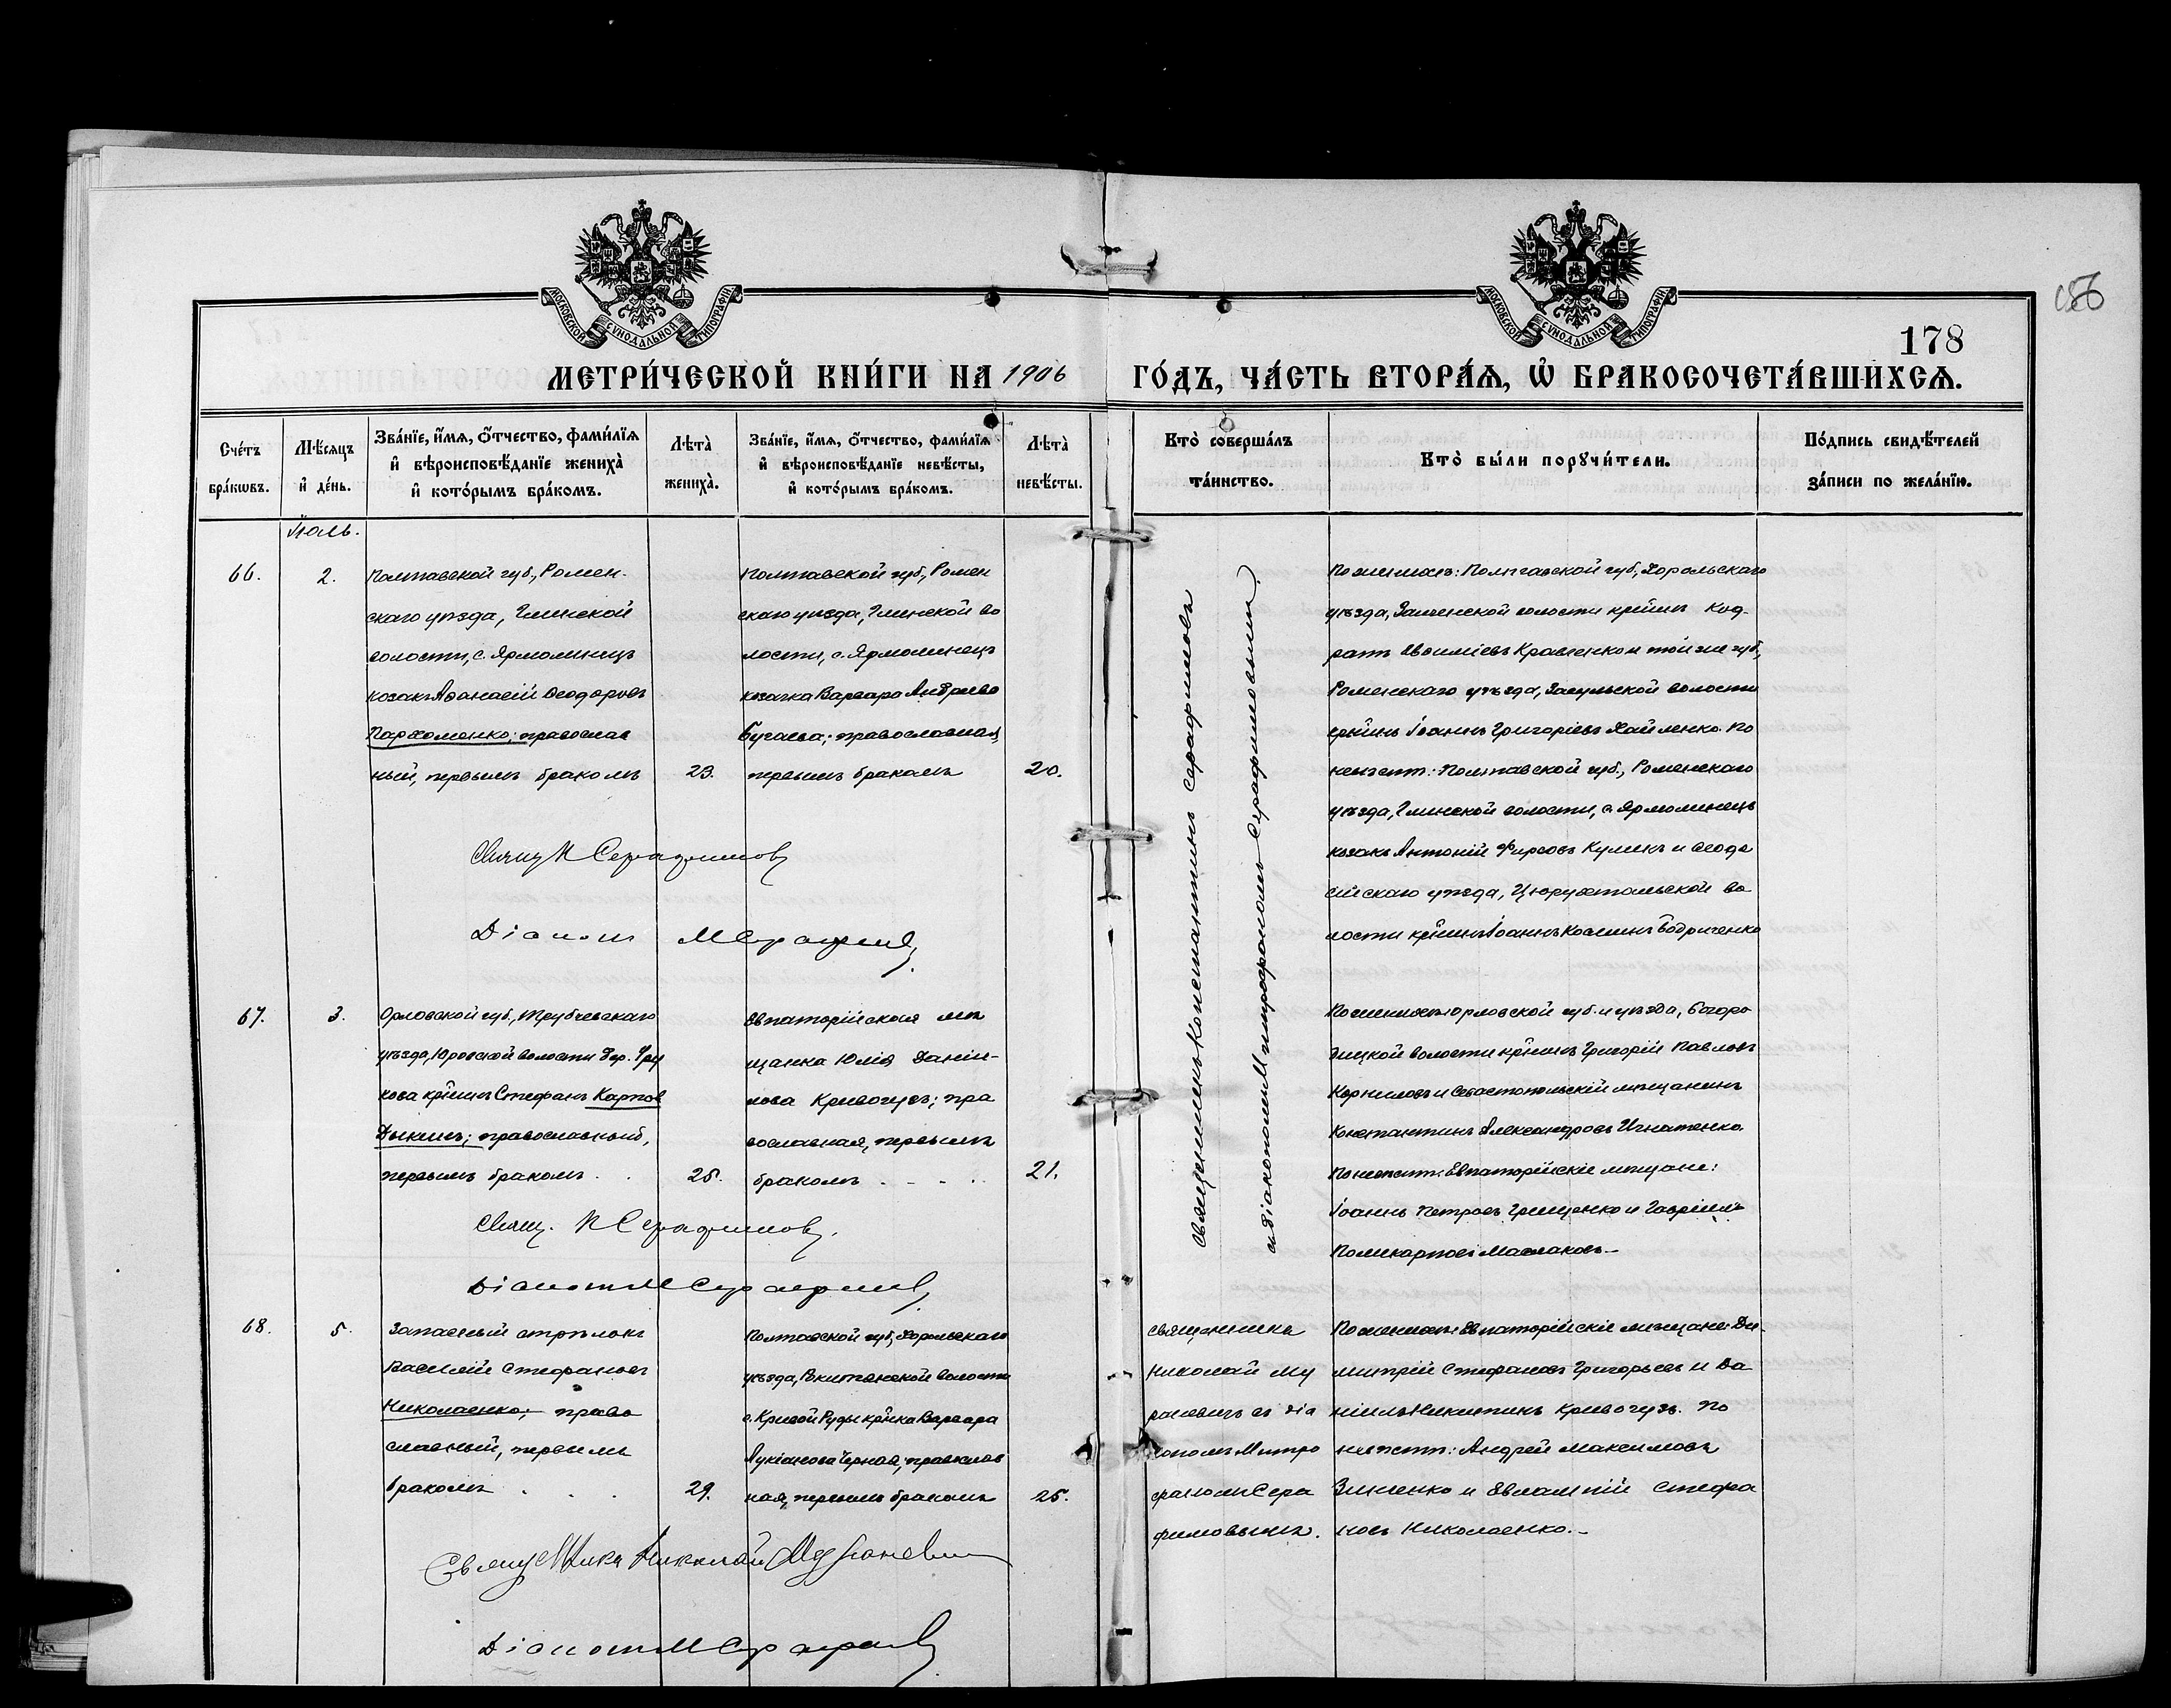 МОСКОВСКОЙ СУНОДАЛЬНОЙ ТИПОГРАФІИ
МОСКОВСКОЙ СУНОДАЛЬНОЙ ТИПОГРАФІИ
178
МЕТРИ́ЧЕСКОЙ КНИ́ГИ НА 1906 ГО́ДЪ, ЧА́СТЬ ВТОРА́Ѧ, Ѡ БРАКОСОЧЕТА́ВШИХСѦ.
Сче́тъ
бра́кѡвъ.
Мѣ́сѧцъ
и҆ де́нь.
Зва́нїе, и҆́мѧ, ѻ҆́тчество, фами́лїѧ
и҆ вѣроисповѣ́данїе жениха̀
и҆ кото́рымъ бра́комъ.
Лѣта̀
жениха̀.
Зва́нїе, и҆́мѧ, ѻ҆́тчество, фами́лїѧ
и҆ вѣроисповѣ́данїе невѣ́сты,
и҆ кото́рымъ бра́комъ.
Лѣта̀
невѣ́сты.
Кто̀ соверша́лъ
та́инство.
Кто̀ бы́ли порꙋчи́тели.
По́дпись свидѣ́телей
за́писи по жела́нїю.
Іюль.
66.
2.
Полтавской губ., Ромен-
скаго уѣзда, Глинской
волости, с. Ярмолинецъ
козакъ Аѳанасій Ѳеодоровъ
Пархоменко; православ
ный, первымъ бракомъ
23.
Полтавской губ., Ромен
скаго уѣзда, Глинской во
лости, с. Ярмолинецъ
козачка Варвара Андреева
Бугаева; православная,
первымъ бракомъ
20.
Священникъ Константинъ Серафимовъ
съ діакономъ Митрофаномъ Серафимовымъ.
По женихѣ: Полтавской губ., Хорольскаго
уѣзда, волости кр̃нинъ Код-
ратъ Евѳиміевъ Кравченко и той же губ.,
Роменскаго уѣзда, Засульской волости
Іоаннъ Григоріевъ Хайленко. По
невѣстѣ: Полтавской губ., Роменскаго
уѣзда, Глинской волости, с. Ярмолинецъ
козакъ Антоній Фирсовъ Куликъ и Ѳеодо
сійскаго уѣзда, Цюрухтальской во
лости кр̃нинъ Іоаннъ Косминъ Бодриченко
Свящ К Серафимовъ
Діаконъ М Серафимовъ
67.
3.
Орловской губ., Трубчевскаго
уѣзда, Юровской волости дер. Гру
кова кр̃нинъ Стефанъ Карпов
Дыкинъ; православный,
первымъ бракомъ . .
25.
Евпаторійская мѣ
щанка Юлія Даніи-
лова Кривогузъ; пра
вославная, первымъ
бракомъ . - - . .
21.
По женихѣ: Орловской губ. и уѣзда, Богоро
дицкой волости кр̃нинъ Григорій Павловъ
Корниловъ и Севастопольскій мѣщанинъ
Константинъ Александровъ Игнатенко.
По невѣстѣ: Евпаторійскіе мѣщане:
Іоаннъ Петровъ Грищенко и Гавріилъ
Поликарповъ Маслаковъ. –
Свящ. К Серафимовъ.
Діаконъ М Серафимовъ
68.
5.
Запасный стрѣлокъ
Василій Стефановъ
Николаенко; право
славный, первымъ
бракомъ . . .
29.
Полтавской губ., Хорольскаго
уѣзда, Рокитянской волости
с. Кривой Руды кр̃нка Варвара
Лукіанова Черная; православ
ная, первымъ бракомъ
25.
Священникъ
Николай Му
раневичъ съ діа
кономъ Митро
фаномъ Сера
фимовымъ.
По женихѣ: Евпаторійскіе мѣщане: Ди-
митрій Стефановъ Григорьевъ и Да
ніилъ Никитинъ Кривогузъ. По
невѣстѣ: Андрей Максимовъ
Зинченко и Евлампій Стефа
новъ Николаенко. –
Священникъ Николай Мураневичъ
Діаконъ М Серафимовъ